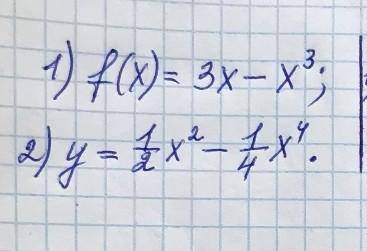 1) f(x) = 3x - x³;
2) y = 1/2 x² - 1/4 x⁴.